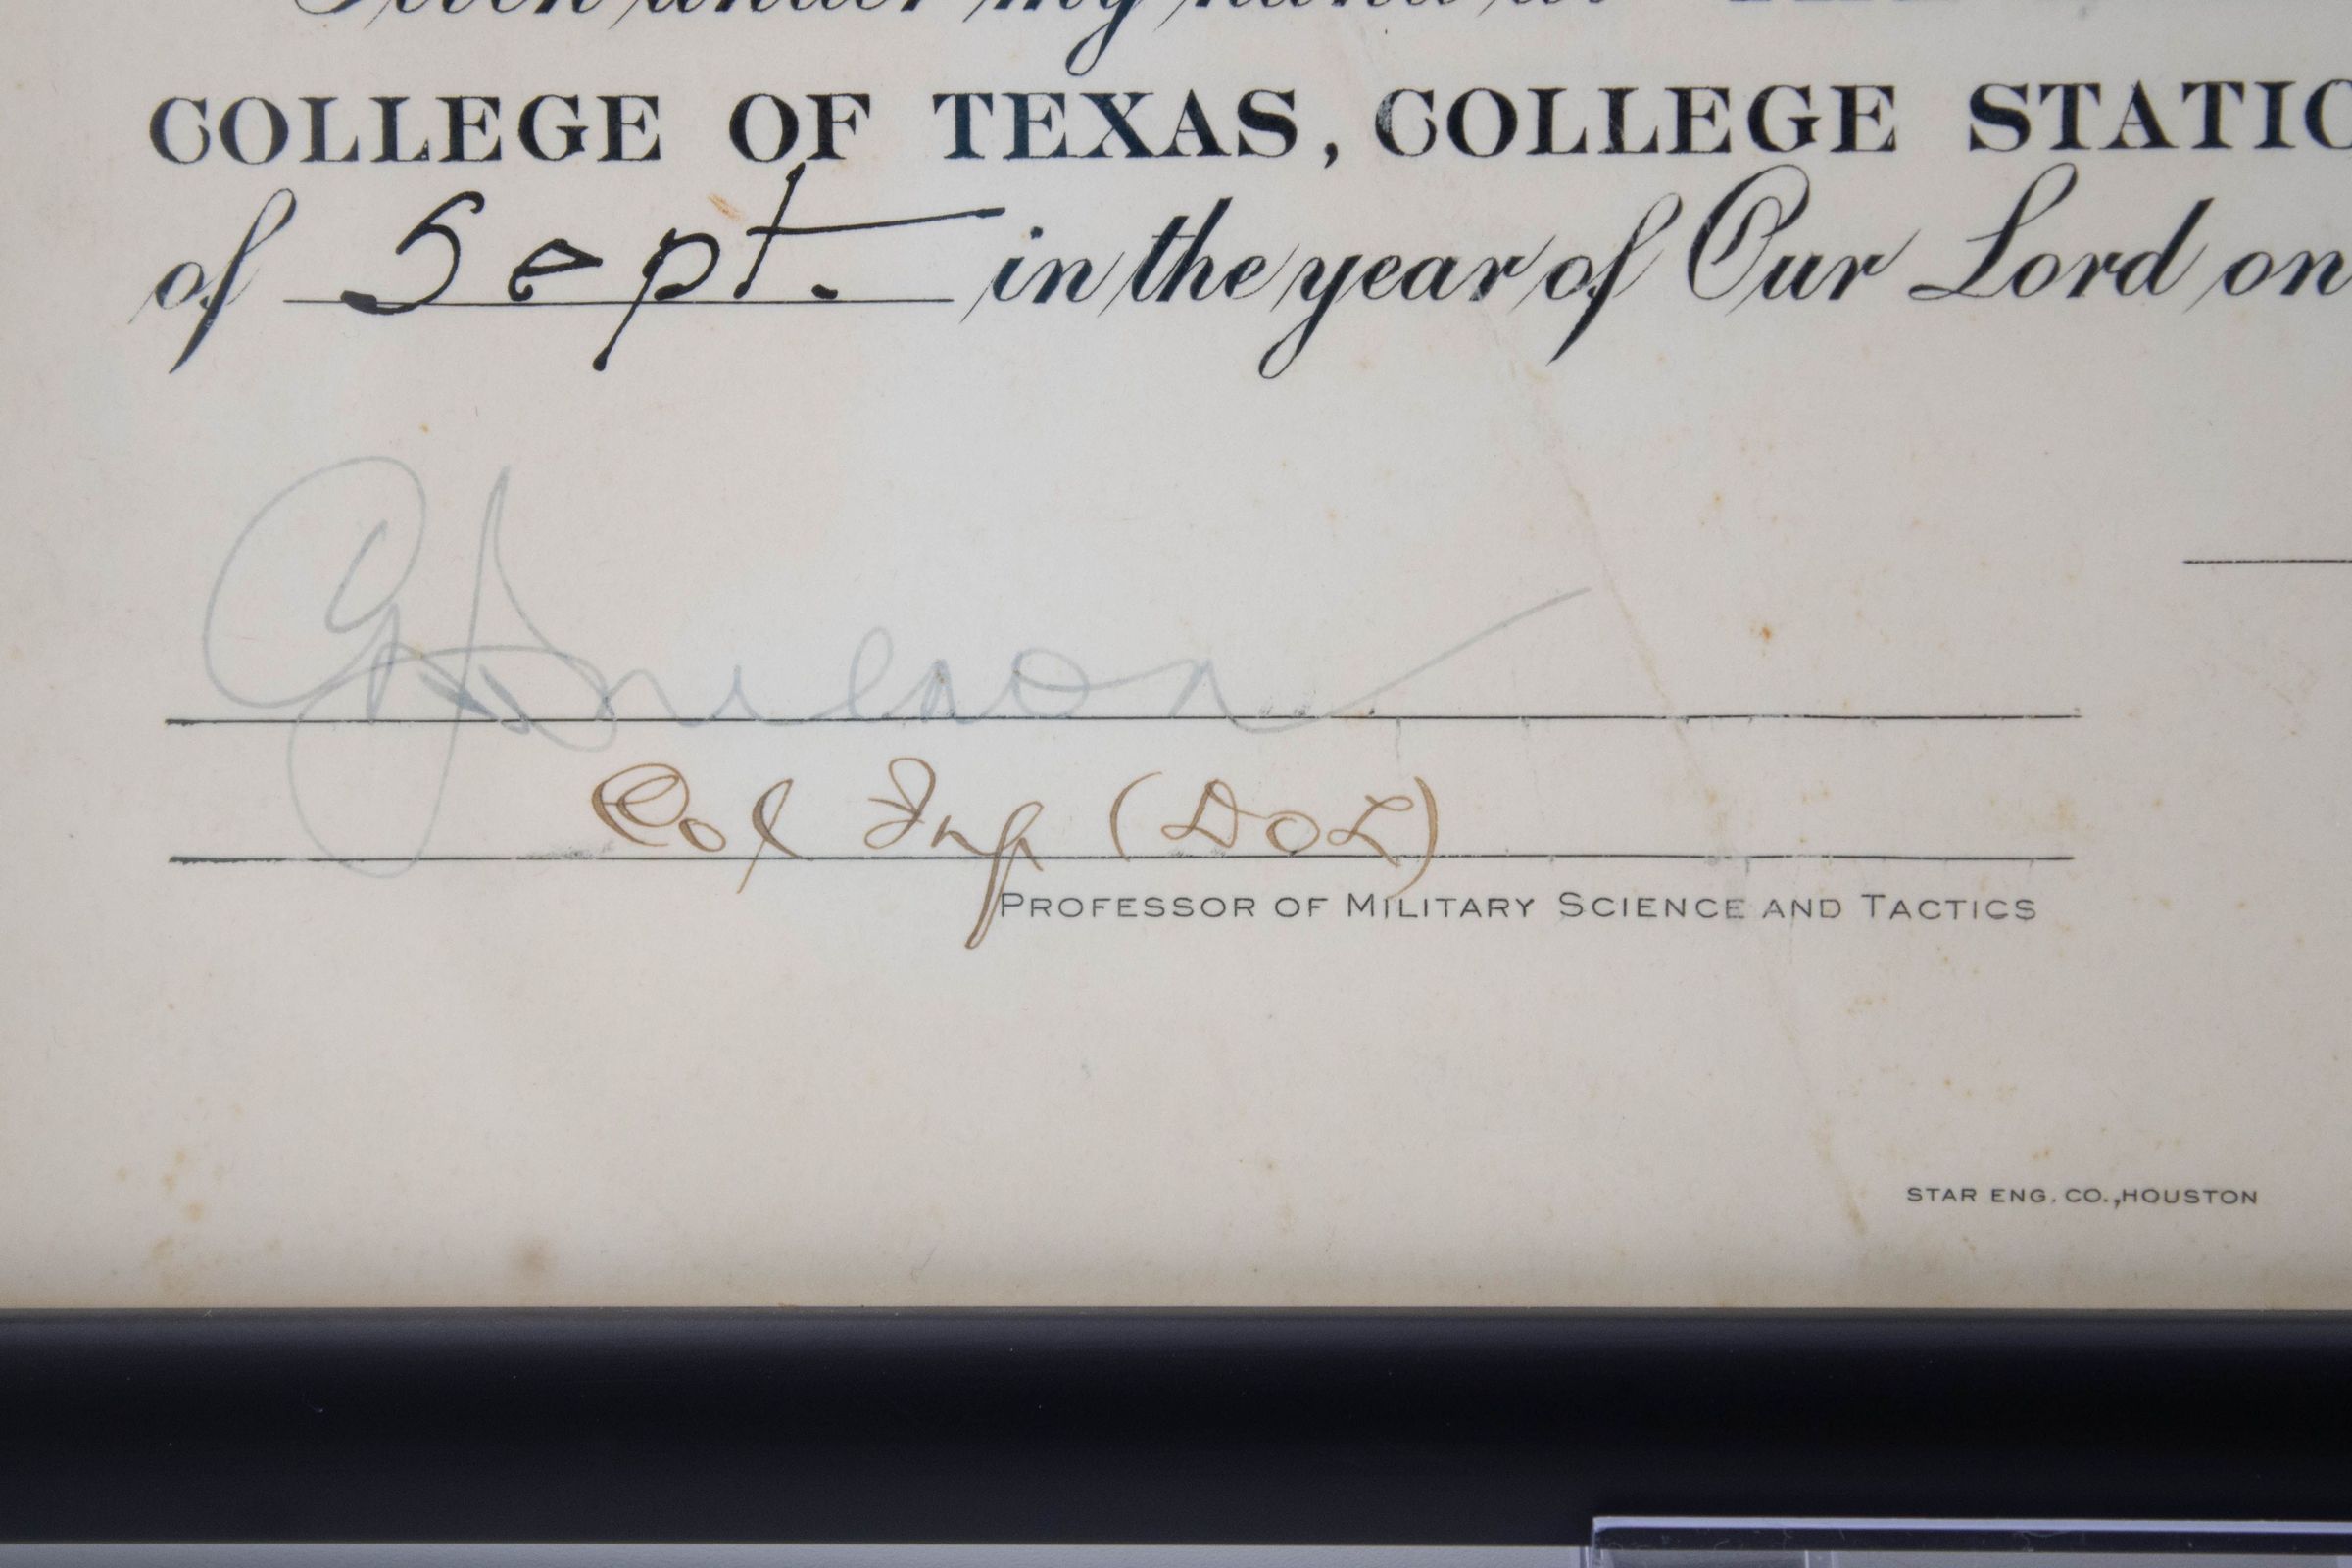 Given under my hand at THE
COLLEGE OF TEXAS, COLLEGE STATIO
of Sept. in the year of Our Lord on
Col Inf (DOL)
PROFESSOR OF MILITARY SCIENCE AND TACTICS
STAR ENG. CO., HOUSTON